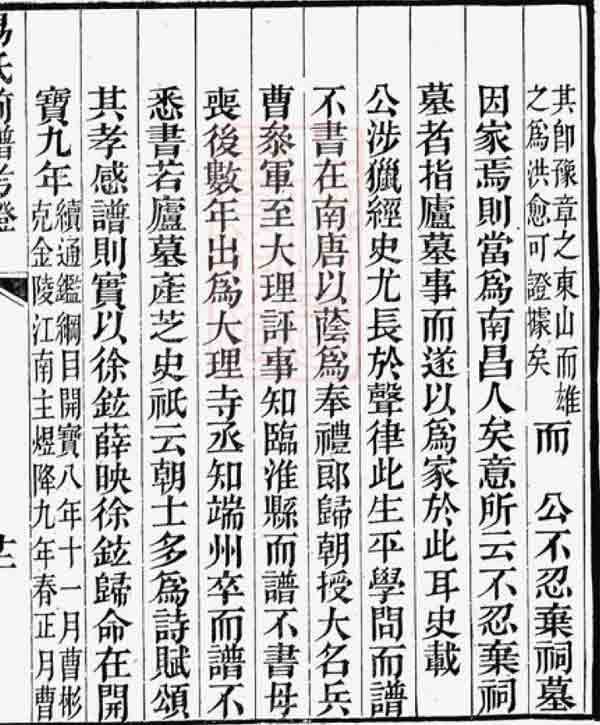 其卽豫章之東山而雄
之爲洪愈可證據矣
而 公不忍棄祠墓
因家焉則當爲南昌人矣意所云不忍棄祠
墓者指廬墓事而遂以爲家於此耳史載
公涉獵經史尤長於聲律此生平學問而譜
不書在南唐以蔭爲奉禮郎歸朝授大名兵
曹叅軍至大理評事知臨淮縣而譜不書母
喪後數年出爲大理寺丞知端州卒而譜不
悉書若廬墓產芝史祇云朝士多爲詩賦頌
其孝感譜則實以徐鉉薛映徐鉉歸命在開
寶九年
續通鑑綱目開寶八年十一月曹彬
克金陵江南主煜降九年春正月曹